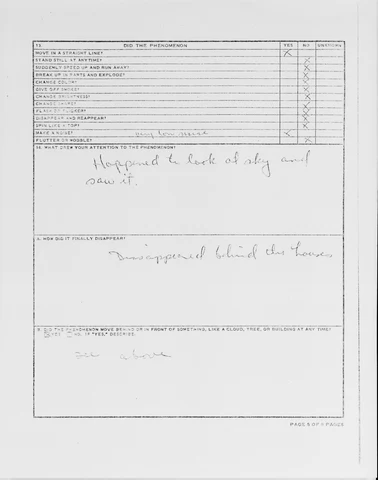 13. DID THE PHENOMENON YES NO UNKNOWN
MOVE IN A STRAIGHT LINE? X
STAND STILL AT ANYTIME? X
SUDDENLY SPEED UP AND RUN AWAY? X
BREAK UP IN PARTS AND EXPLODE? X
CHANGE COLOR? X
GIVE OFF SMOKE? X
CHANGE BRIGHTNESS? X
CHANGE SHAPE? X
FLASH OR FLICKER? X
DISAPPEAR AND REAPPEAR? X
SPIN LIKE A TOP? X
MAKE A NOISE? very low noise X
FLUTTER OR WOBBLE? X
14. WHAT DREW YOUR ATTENTION TO THE PHENOMENON?
Happened to look at sky and
saw it.
HOW DID IT FINALLY DISAPPEAR?
Disappeared behind the houses
DID THE PHENOMENON MOVE BEHIND OR IN FRONT OF SOMETHING, LIKE A CLOUD, TREE, OR BUILDING AT ANY TIME?
YES NO. IF "YES," DESCRIBE.
see above
PAGE 5 OF PAGES